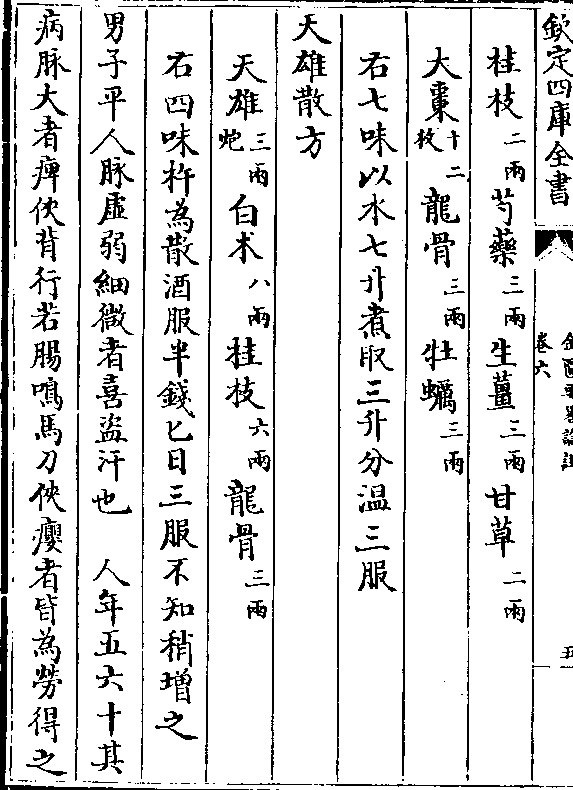 欽定四庫全書
金匱要畧論註
卷六
五
桂枝二兩 芍藥三兩 生薑三兩 甘草二兩
大棗十二枚 龍骨三兩 牡蠣三兩
右七味以水七升煮取三升分温三服
天雄散方
天雄三兩炮 白术八兩 桂枝六兩 龍骨三兩
右四味杵為散酒服半錢匕日三服不知稍增之
男子平人脉虛弱細微者喜盜汗也 人年五六十其
病脉大者痺俠背行若腸鳴馬刀俠癭者皆為勞得之